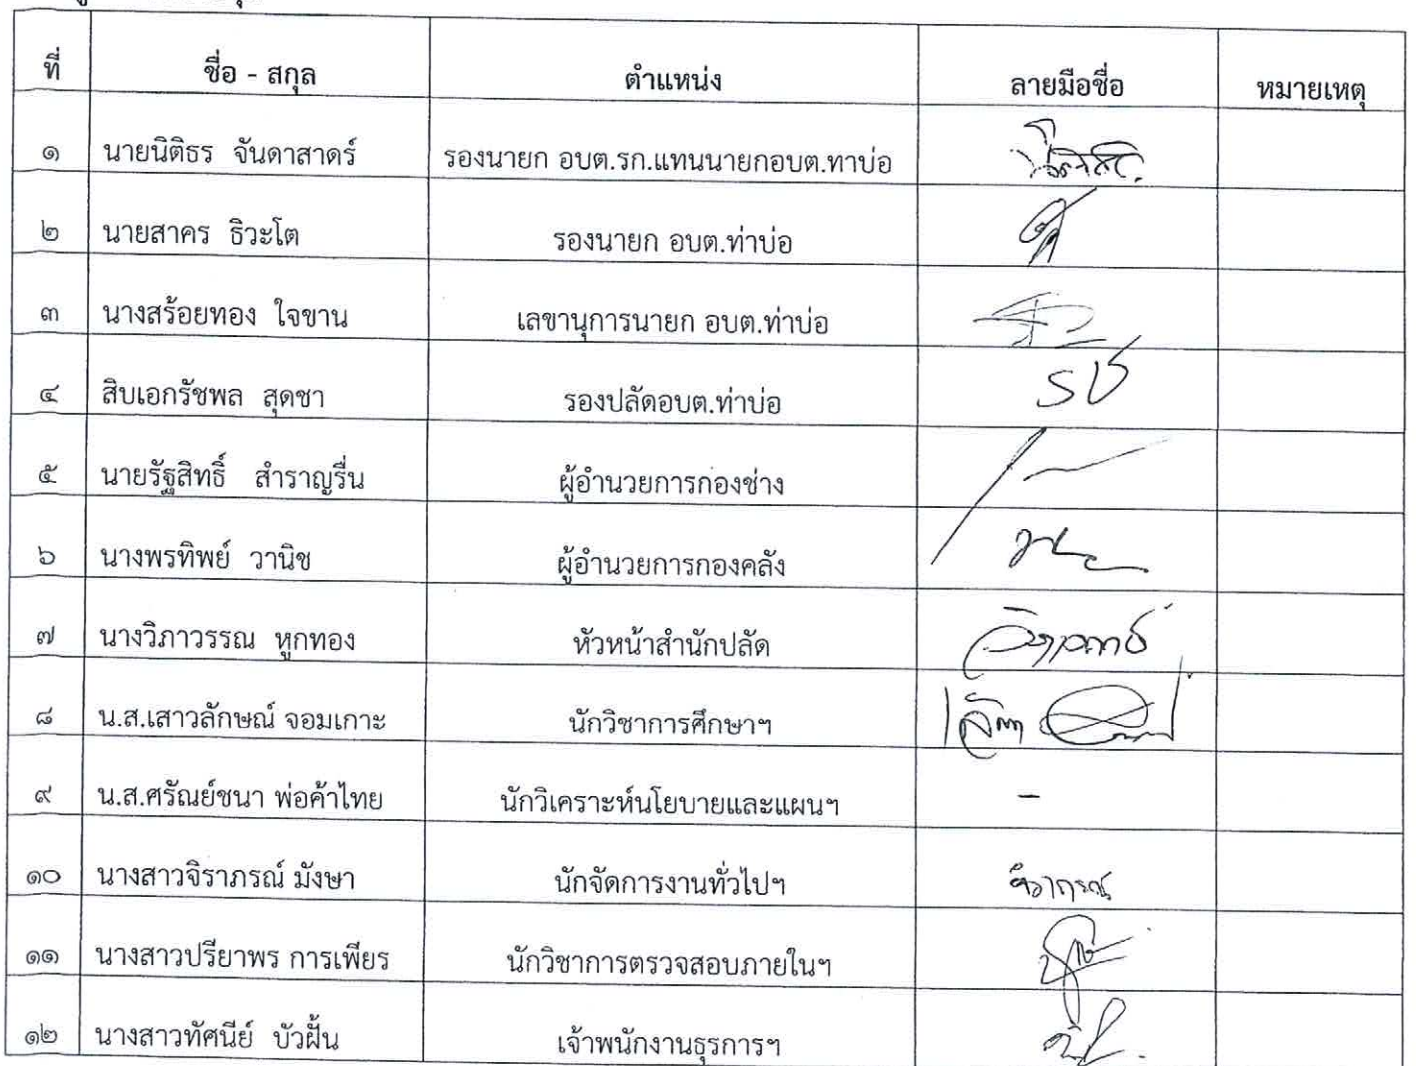 ที่ ชื่อ - สกุล ตำแหน่ง ลายมือชื่อ หมายเหตุ
๑ นายนิติธร จันดาสาดร์ รองนายก อบต.รก.แทนนายกอบต.ทาบ่อ
๒ นายสาคร ธิวะโต รองนายก อบต.ท่าบ่อ
๓ นางสร้อยทอง ใจขาน เลขานุการนายก อบต.ท่าบ่อ
๔ สิบเอกรัชพล สุดชา รองปลัดอบต.ท่าบ่อ รช
๕ นายรัฐสิทธิ์ สำราญรื่น ผู้อำนวยการกองช่าง
๖ นางพรทิพย์ วานิช ผู้อำนวยการกองคลัง
๗ นางวิภาวรรณ หูกทอง หัวหน้าสำนักปลัด
๘ น.ส.เสาวลักษณ์ จอมเกาะ นักวิชาการศึกษาฯ
๙ น.ส.ศรัณย์ชนา พ่อค้าไทย นักวิเคราะห์นโยบายและแผนฯ -
๑๐ นางสาวจิราภรณ์ มังษา นักจัดการงานทั่วไปฯ จิราภรณ์
๑๑ นางสาวปรียาพร การเพียร นักวิชาการตรวจสอบภายในฯ
๑๒ นางสาวทัศนีย์ บัวฝั้น เจ้าพนักงานธุรการฯ